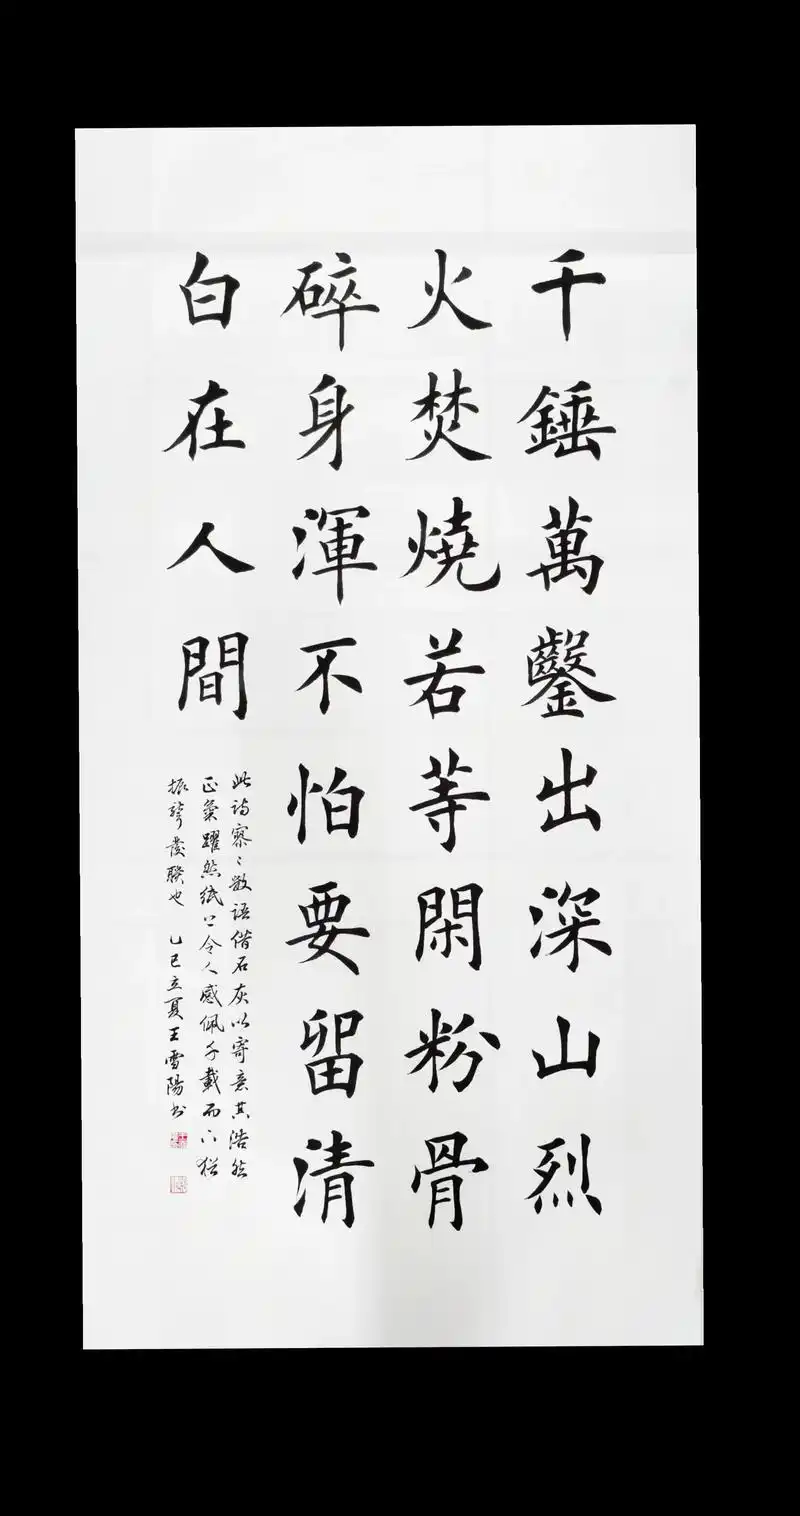 千錘萬鑿出深山烈
火焚燒若等閑粉骨
碎身渾不怕要留清
白在人間
此詩寥〻數語借石灰以寄意其浩然
正氣躍然紙上令人感佩千載而下猶
振聾發聵也 乙巳立夏王雪陽書